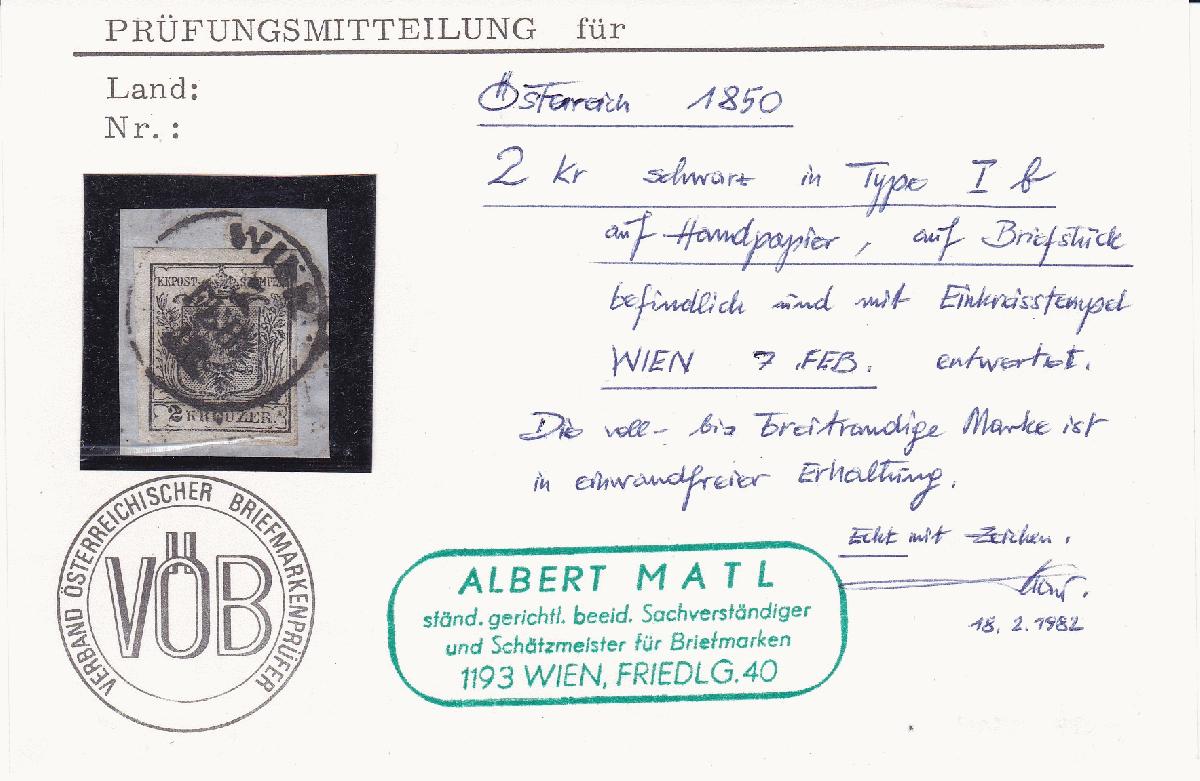 PRÜFUNGSMITTEILUNG für
Land:
Nr.:
Österreich 1850
2 Kr schwarz in Type I b
auf Handpapier, auf Briefstück
befindlich und mit Einkreisstempel
WIEN 7 FEB. entwertet.
Die voll- bis breitrandige Marke ist
in einwandfreier Erhaltung.
Echt mit Zeichen.
18. 2. 1982
WIEN
KKPOST STEMPEL
2 KREUZER
VERBAND ÖSTERREICHISCHER BRIEFMARKENPRÜFER
VÖB
ALBERT MATL
ständ. gerichtl. beeid. Sachverständiger
und Schätzmeister für Briefmarken
1193 WIEN, FRIEDLG. 40